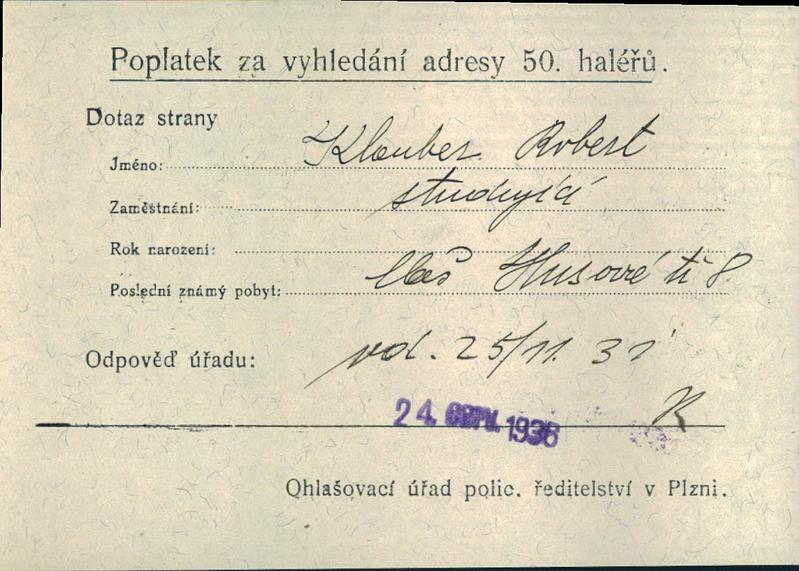 Poplatek za vyhledání adresy 50. haléřů.
Dotaz strany
Jméno: Klauber Robert
Zaměstnání: studující
Rok narození:
Poslední známý pobyt: Husově tř 8
Odpověď úřadu: 25/11. 31
24. 1936
Ohlašovací úřad polic. ředitelství v Plzni.